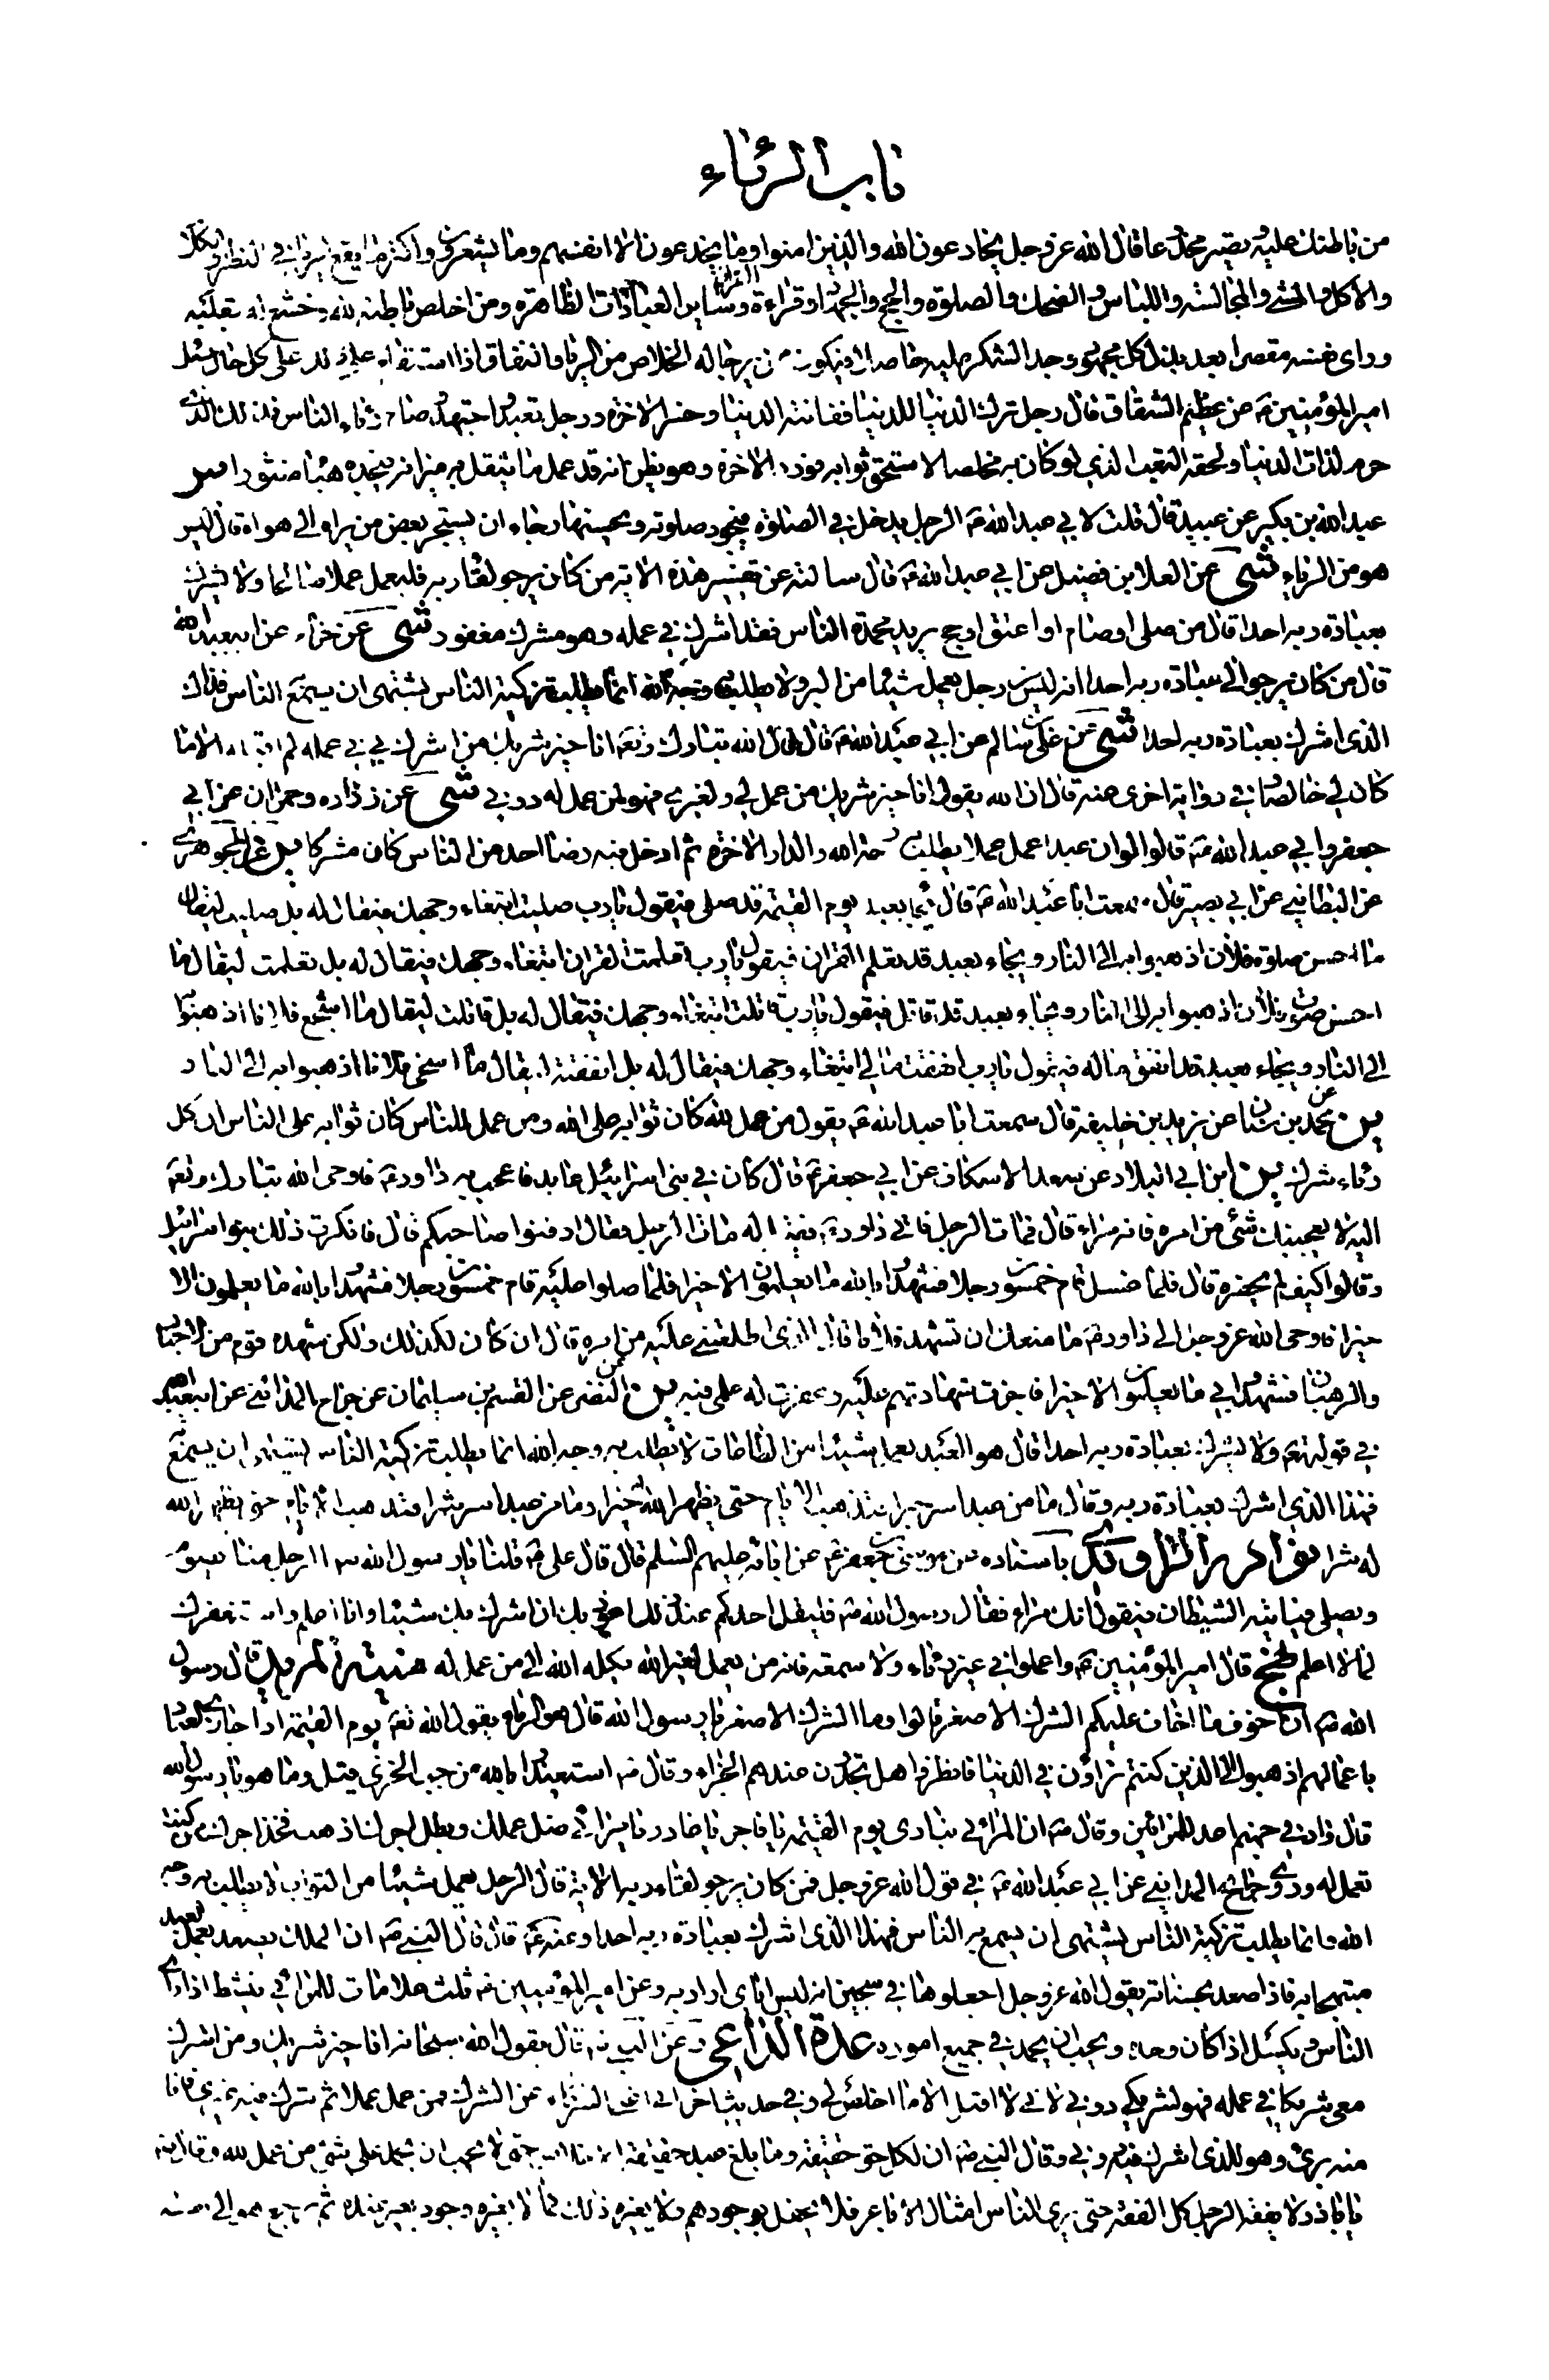 باب الرئاء
من باطنك عليه بصير محمدعا قال الله عز وجل يخادعون الله والذين امنوا وما يخدعون الا انفسهم وما يشعرون واكثر ما يقع الرئاء في النظر والكلام
والاكل والمشي والمجالسه واللباس والضحك والصلوة والحج والجهاد وقراءة القران وساير العبادات الظاهرة ومن اخلص باطنه لله وخشع له بقلبه
وراى نفسه مقصرا بعد بذل كل مجهود وجد الشكر عليه حاصلا فيكون ممن يرجا له الخلاص من الريا والنفاق اذا استقام على ذلك على كل حال سئل
امير المؤمنين ع من عظيم الشقاق قال رجل ترك الدنيا للدنيا ففاتته الدنيا وخسر الاخرة ورجل تعبد واجتهد وصام رئاء الناس فذلك الذي
حرم لذات الدنيا ولحقه التعب الذي لو كان به مخلصا لاستحق ثوابه فورد الاخرة وهو يظن انه قد عمل ما يثقل به ميزانه فيجده هباء منثورا سر
عبد الله بن بكير عن عبيد قال قلت لابي عبد الله ع الرجل يدخل في الصلوة فيجود صلوته ويحسنها رجاء ان يستجر بعض من يراه الى هواه قال ليس
هو من الرئاء شى عن العلا بن فضيل عن ابي عبد الله ع قال سالته عن تفسير هذه الاية من كان يرجو لقاء ربه فليعمل عملا صالحا ولا يشرك
بعبادة ربه احدا قال من صلى او صام او اعتق او حج يريد محمدة الناس فقد اشرك في عمله وهو مشرك مغفور شى عن جراح عن ابي عبد الله
قال من كان يرجو الى بعبادة ربه احدا انه ليس رجل يعمل شيئا من البر ولا يطلب به وجه الله انما يطلب تزكية الناس يشتهى ان يسمع الناس فذاك
الذى اشرك بعبادة ربه احدا شى عن على بن سالم عن ابي عبد الله ع قال قال الله تبارك وتعم انا خير شريك من اشرك بي في عمله لم اقبله الا ما
كان لي خالصا وفي رواية اخرى عنه قال ان الله يقول انا خير شريك من عمل لي ولغيري فهو لمن عمل له دوني شى عن زراره وحمران عن ابي
جعفر وابي عبد الله ع قالوا لو ان عبدا عمل عملا يطلب به رحمة الله والدار الاخرة ثم ادخل فيه رضا احد من الناس كان مشركا ين عن الجوهري
عن البطايني عن ابي بصير قال سمعت ابا عبد الله ع قال يجاء بعبد يوم القيمة قد صلى فيقول يا رب صليت ابتغاء وجهك فيقال له بل صليت ليقال
ما احسن صلوة فلان اذهبوا به الى النار ويجاء بعبد قد تعلم القران فيقول يا رب تعلمت القران ابتغاء وجهك فيقال له بل تعلمت ليقال ما
احسن صوت فلان اذهبوا به الى النار ويجاء بعبد قد قاتل فيقول يا رب قاتلت ابتغاء وجهك فيقال له بل قاتلت ليقال ما اشجع فلانا اذهبوا به
الى النار ويجاء بعبد قد انفق ماله فيقول يا رب انفقت مالي ابتغاء وجهك فيقال له بل انفقته ليقال ما اسخى فلانا اذهبوا به الى النار
ين عن محمد بن سنان عن يزيد بن خليفه قال سمعت ابا عبد الله ع يقول من عمل لله كان ثوابه على الله ومن عمل للناس كان ثوابه على الناس ان كل
رئاء شرك ين ابن ابي البلاد عن سعد الاسكاف عن ابي جعفر ع قال كان في بنى اسرائيل عابد فاعجب به داود ع فاوحى الله تبارك وتعم
اليه لا يعجبنك شئ من امره فانه مراء قال فمات الرجل فاتي داود ع فقيل له مات الرجل فقال ادفنوا صاحبكم قال فانكرت ذلك بنو اسرائيل
وقالوا كيف لم يحضره قال فلما غسل قام خمسون رجلا فشهدوا بالله ما يعلمون الا خيرا فلما صلوا عليه قام خمسون رجلا فشهدوا بالله ما يعلمون الا
خيرا فاوحى الله عز وجل الى داود ع ما منعك ان تشهد فلانا قال الذى اطلعتنى عليه من امره قال ان كان لكذلك ولكن شهده قوم من الاحبار
والرهبان فشهدوا بي ما يعلمون الا خيرا فاجزت شهادتهم عليه وغفرت له علمى فيه ين عن النضر عن القسم بن سليمان عن جراح المدائنى عن ابي عبد الله
في قوله تعم ولا يشرك بعبادة ربه احدا قال هو العبد يعمل شيئا من الطاعات لا يطلب به وجه الله انما يطلب تزكية الناس يشتهى ان يسمع
فهذا الذى اشرك بعبادة ربه وقال ما من عبد اسر خيرا فتذهب الايام حتى يظهر الله له خيرا وما من عبد اسر شرا فتذهب الايام حتى يظهر الله
له شرا نوادر الراوندى باسناده عن موسى بن جعفر ع عن ابائه عليهم السلم قال قال على ع قلنا يا رسول الله ص الرجل منا يصوم
ويصلى فياتيه الشيطان فيقول انك مراء فقال رسول الله ص فليقل احدكم عند ذلك اعوذ بك ان اشرك بك شيئا وانا اعلم واستغفرك
لما لا اعلم نهج قال امير المؤمنين ع واعملوا في غير رئاء ولا سمعة فانه من يعمل لغير الله يكله الله الى من عمل له منية المريد قال رسول
الله ص ان اخوف ما اخاف عليكم الشرك الاصغر قالوا وما الشرك الاصغر يا رسول الله قال هو الرئاء يقول الله تعم يوم القيمة اذا جازى العباد
باعمالهم اذهبوا الى الذين كنتم تراؤن في الدنيا فانظروا هل تجدون عندهم الجزاء وقال ص استعيذوا بالله من جب الخزي قيل وما هو يا رسول الله
قال واد في جهنم اعد للمرائين وقال ص ان المرائي ينادى يوم القيمة يا فاجر يا غادر يا مرائي ضل عملك وبطل اجرك اذهب فخذ اجرك ممن كنت
تعمل له وروى جراح المدايني عن ابي عبد الله ع في قول الله عز وجل فمن كان يرجو لقاء ربه الاية قال الرجل يعمل شيئا من الثواب لا يطلب به وجه
الله وانما يطلب تزكية الناس يشتهى ان يسمع به الناس فهذا الذى اشرك بعبادة ربه احدا وعنه ع قال قال النبى ص ان الملك يصعد بعمل العبد
مبتهجا به فاذا صعد بحسناته يقول الله عز وجل اجعلوها في سجين انه ليس اياى اراد به وعن امير المؤمنين ع ثلث علامات للمرائي ينشط اذا راى
الناس ويكسل اذا كان وحده ويحب ان يحمد في جميع اموره عدة الداعى عن النبى ص قال يقول الله سبحانه انا خير شريك ومن اشرك
معى شريكا في عمله فهو لشريكي دوني لاني لا اقبل الا ما اخلص لي وفي حديث اخر اني اغنى الشركاء عن الشرك فمن عمل عملا ثم اشرك فيه غيري فانا
منه برئ وهو للذى اشرك فيه دوني وقال النبى ص ان لكل حق حقيقة وما بلغ عبد حقيقة الاخلاص حتى لا يحب ان يحمد على شئ من عمل لله وقال ص
يا اباذر لا يفقه الرجل كل الفقه حتى يرى الناس امثال الاباعر فلا يحفل بوجودهم ولا يغيره ذلك كما لا يغيره وجود بعير عنده ثم يرجع هو الى نفسه